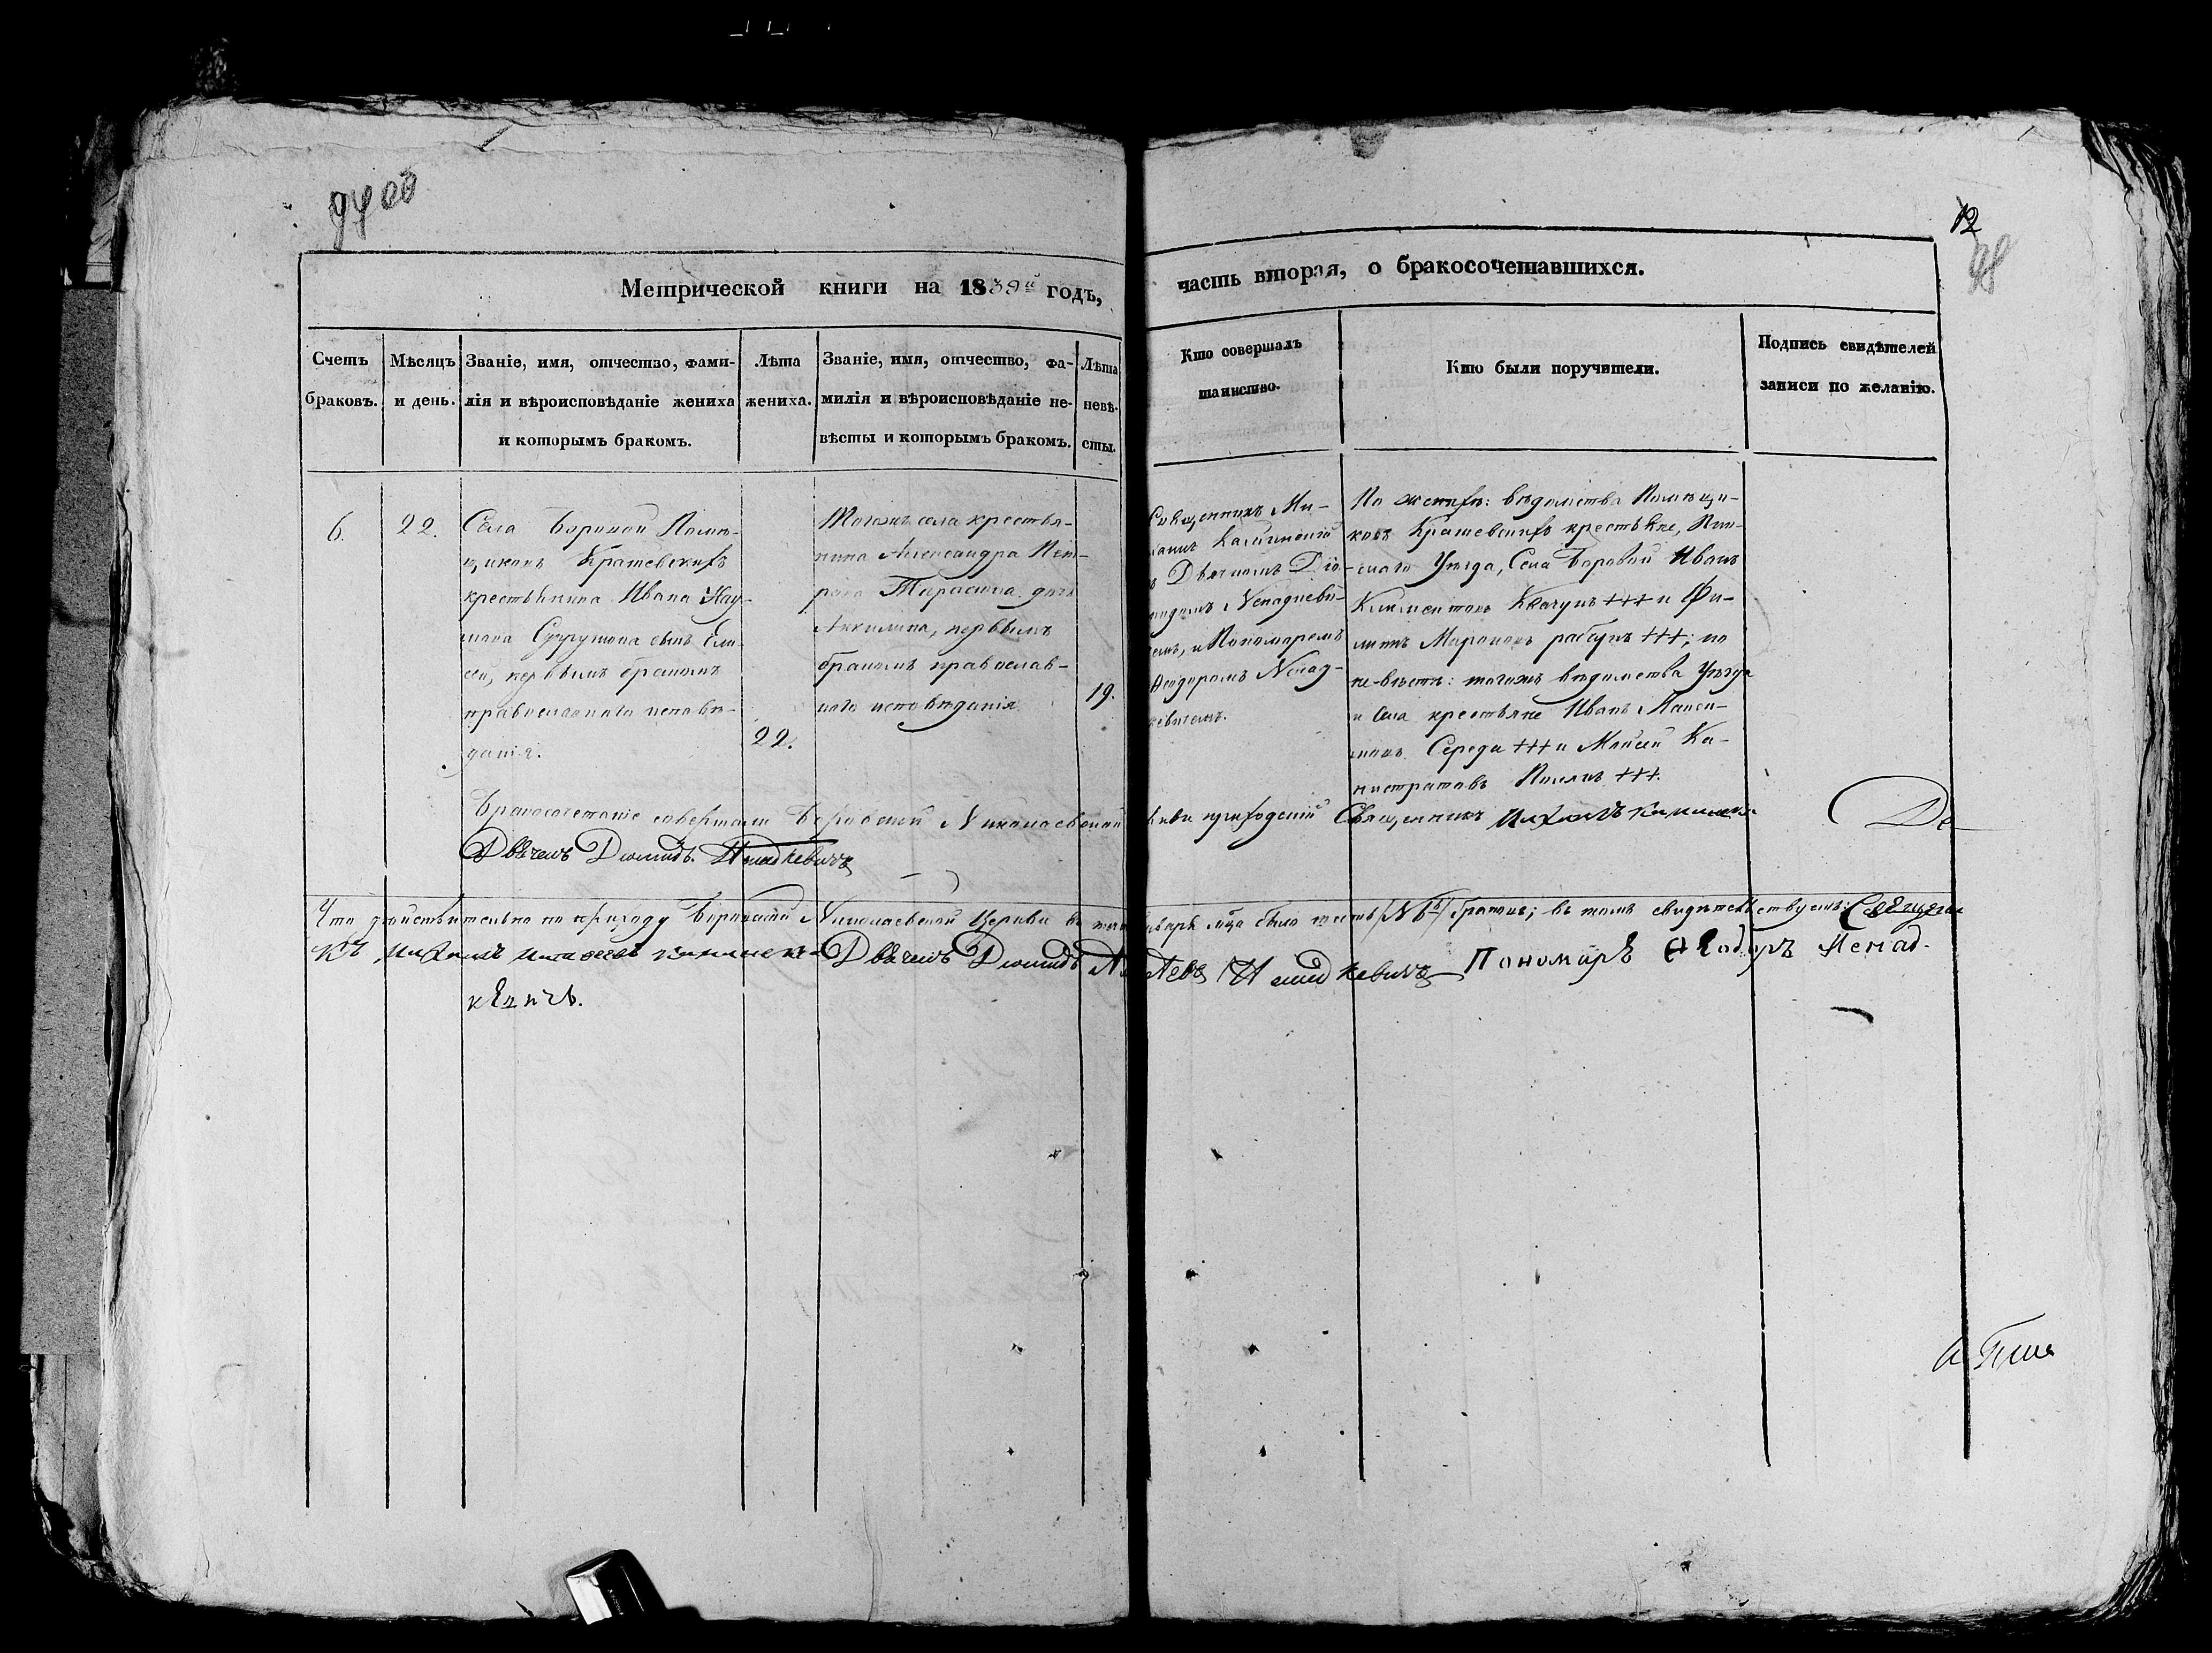 12
Метрической книги на 1839й годъ,
часть вторая, о бракосочетавшихся.
Счетъ
браковъ.
Мѣсяцъ
и день.
Званіе, имя, отчество, фами-
лія и вѣроисповѣданіе жениха
и которымъ бракомъ.
Лѣта
жениха.
Званіе, имя, отчество, фа-
милія и вѣроисповѣданіе не-
вѣсты и которымъ бракомъ.
Лѣта
невѣ-
сты.
Кто совершалъ
таинство.
Кто были поручители.
Подпись свидѣтелей
записи по желанію.
6.
22.
Села Боровой Помѣ-
щиковъ Крашевскихъ
крестьянина Ивана Нау-
мова сынъ Ели-
сей, первымъ бракомъ
православнаго исповѣ-
данія.
22.
Тогожъ села крестья-
нина Александра Пет-
рова Тарасика дочь
Аккилина, первымъ
бракомъ православ-
наго исповѣданія
19.
Священникъ Ми-
хаилъ
Дьячкомъ Діо-
мидомъ Ненадкеви-
чемъ, и Пономаремъ
Ѳеодоромъ Ненад-
кевичемъ.
По женихѣ: вѣдомства Помѣщи-
ковъ Крашевскихъ крестьяне, Пин-
скаго Уѣзда, Села Боровой Иванъ
Климентовъ +++ и Фи-
липъ Мироновъ +++; по
невѣстѣ: тогожъ вѣдомства Уѣзда
и Села крестьяне Иванъ Макси-
мовъ Середа +++ и Моисей Ка-
листратовъ +++.
Бракосочетаніе совершали Боровской Николаевской
приходскій Священникъ Михаилъ
Дьячекъ Діомидъ Ненадкевичъ
Что дѣйствительно по приходу Боровской Николаевской Церкви въ
мца было шесть /№ 6й/ браковъ; въ томъ свидѣтельствуемъ: Священни
къ Михаилъ Дьячекъ Діомидъ
Ненадкевичъ Пономарь Ѳеодоръ Ненад-
кевичъ.